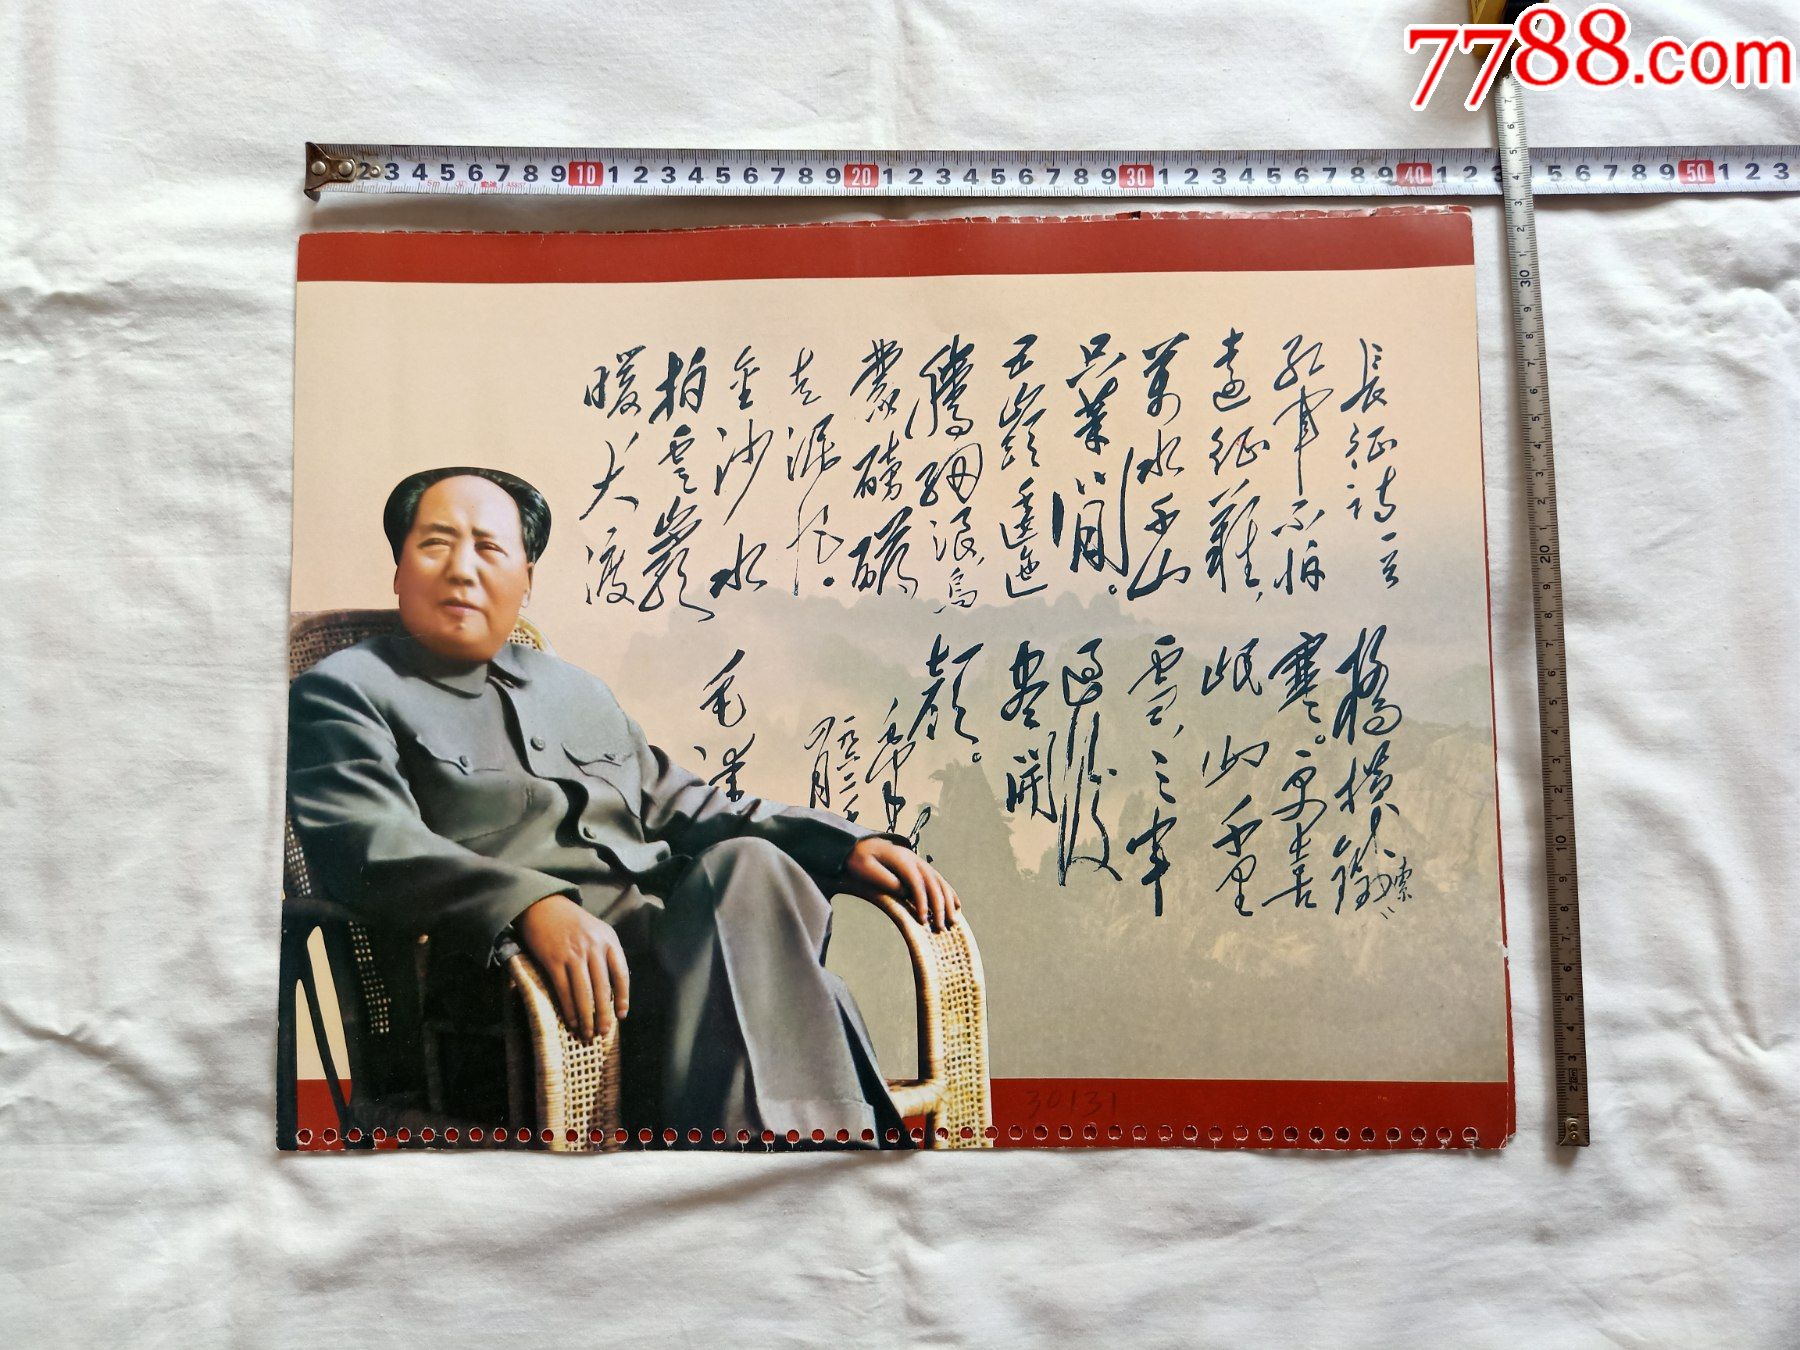 7788.com
2 3 4 5 6 7 8 9 10 1 2 3 4 5 6 7 8 9 20 1 2 3 4 5 6 7 8 9 30 1 2 3 4 5 6 7 8 9 40 1 2 3 5 6 7 8 9 50 1 2 3
5m
長征詩一首
紅軍不怕
遠征難,
萬水千山
只等閒。
五嶺逶迤
騰細浪,烏
蒙磅礴
走泥丸。
金沙水
拍雲巖
暖大渡
橋橫鐵索
寒。更喜
岷山千里
雪,三軍
過後
盡開
顏。
一九六二年
四月
毛澤
30131